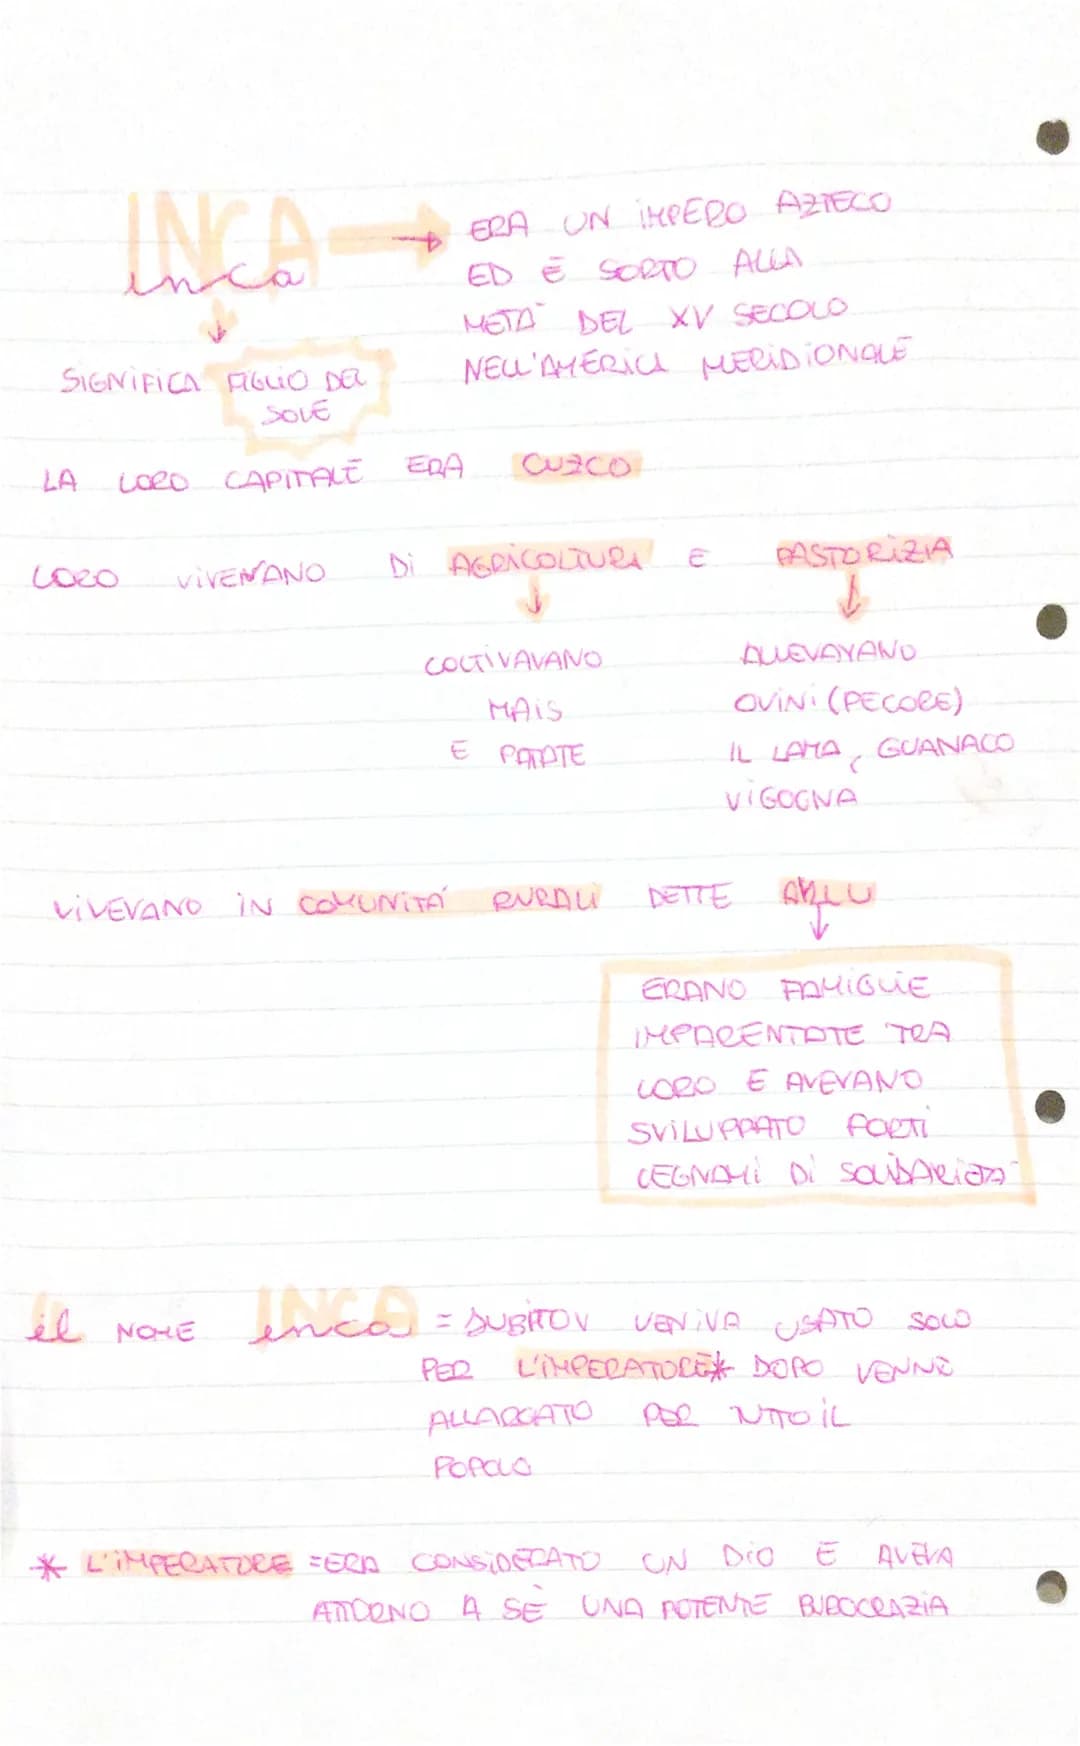 INCA
inca
ERA UN IMPERO AZTECO
ED È SORTO ALLA
METÀ DEL XV SECOLO
NELL'AMERICA MERIDIONALE
SIGNIFICA FIGLIO DEL
SOLE
LA LORO CAPITALE ERA CUZCO
LORO VIVEVANO DI AGRICOLTURA E PASTORIZIA
COLTIVAVANO
MAIS
E PATATE
ALLEVAVANO
OVINI (PECORE)
IL LAMA, GUANACO
VIGOGNA
VIVEVANO IN COMUNITÁ RURALI DETTE AYLLU
ERANO FAMIGLIE
IMPARENTATE TRA
LORO E AVEVANO
SVILUPPATO FORTI
LEGNAMI DI SOLIDARIETÀ
il NOME inca = VENIVA USATO SOLO
PER L'IMPERATORE* DOPO VENNE
ALLARGATO PER TUTTO IL
POPOLO
* L'IMPERATORE = ERA CONSIDERATO UN DIO E AVEVA
ATTORNO A SÈ UNA POTENTE BUROCRAZIA